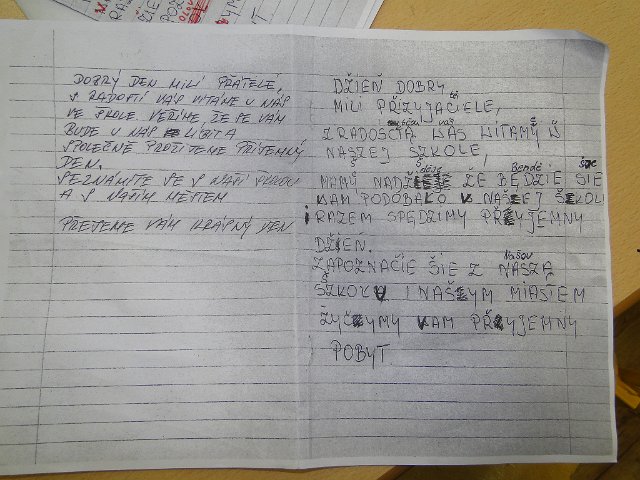 DOBRÝ DEN MILÍ PŘÁTELÉ,
S RADOSTÍ VÁS VÍTÁME U NÁS
VE ŠKOLE. VĚŘÍME, ŽE SE VÁM
BUDE U NÁS LÍBIT A
SPOLEČNĚ PROŽIJEME PŘÍJEMNÝ
DEN.
SEZNÁMÍTE SE S NAŠÍ ŠKOLOU
A S NAŠÍM MĚSTEM
PŘEJEME VÁM KRÁSNÝ DEN
DŽIEŇ DOBRY
MILI PŘIZYJACIELE,
Z RADOŠCIA WAS WITAMY W
NASZEJ SZKOLE,
MAMY NADZ ŽE BĘDZIE SIE
VAM PODÓBALO V NAŠEJ ŠKOLI
I RAZEM SPĘDZIMY PŘYJEMNY
DŽIEŇ.
ZAPOZNAČIE ŠIE Z NASZA
ŠZKOLU I NAŠYM MIASTEM
ŽYČYMY VAM PŘYJEMNY
POBYT